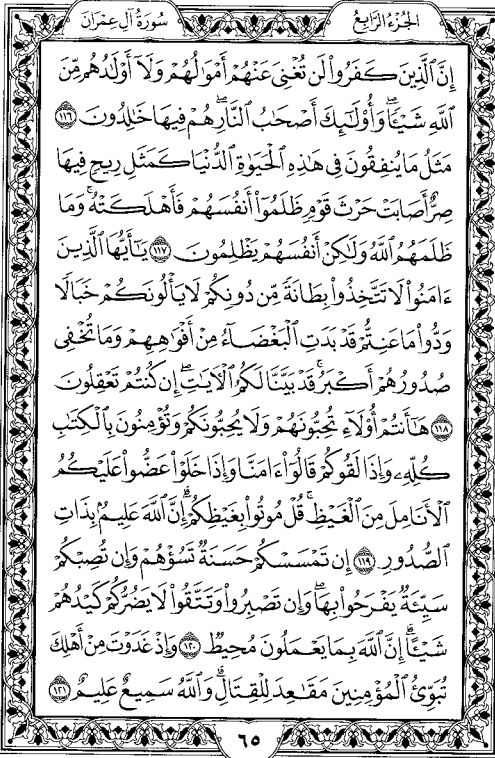 الجزء الرابع
سورة آل عمران
إِنَّ ٱلَّذِينَ كَفَرُوا۟ لَن تُغْنِىَ عَنْهُمْ أَمْوَٰلُهُمْ وَلَآ أَوْلَٰدُهُم مِّنَ
ٱللَّهِ شَيْـًٔا ۖ وَأُو۟لَٰٓئِكَ أَصْحَٰبُ ٱلنَّارِ ۚ هُمْ فِيهَا خَٰلِدُونَ ١١٦
مَثَلُ مَا يُنفِقُونَ فِى هَٰذِهِ ٱلْحَيَوٰةِ ٱلدُّنْيَا كَمَثَلِ رِيحٍ فِيهَا
صِرٌّ أَصَابَتْ حَرْثَ قَوْمٍ ظَلَمُوٓا۟ أَنفُسَهُمْ فَأَهْلَكَتْهُ ۚ وَمَا
ظَلَمَهُمُ ٱللَّهُ وَلَٰكِنْ أَنفُسَهُمْ يَظْلِمُونَ ١١٧ يَٰٓأَيُّهَا ٱلَّذِينَ
ءَامَنُوا۟ لَا تَتَّخِذُوا۟ بِطَانَةً مِّن دُونِكُمْ لَا يَأْلُونَكُمْ خَبَالًا
وَدُّوا۟ مَا عَنِتُّمْ قَدْ بَدَتِ ٱلْبَغْضَآءُ مِنْ أَفْوَٰهِهِمْ وَمَا تُخْفِى
صُدُورُهُمْ أَكْبَرُ ۚ قَدْ بَيَّنَّا لَكُمُ ٱلْـَٔايَٰتِ ۖ إِن كُنتُمْ تَعْقِلُونَ
١١٨ هَٰٓأَنتُمْ أُو۟لَآءِ تُحِبُّونَهُمْ وَلَا يُحِبُّونَكُمْ وَتُؤْمِنُونَ بِٱلْكِتَٰبِ
كُلِّهِۦ وَإِذَا لَقُوكُمْ قَالُوٓا۟ ءَامَنَّا وَإِذَا خَلَوْا۟ عَضُّوا۟ عَلَيْكُمُ
ٱلْأَنَامِلَ مِنَ ٱلْغَيْظِ ۚ قُلْ مُوتُوا۟ بِغَيْظِكُمْ ۗ إِنَّ ٱللَّهَ عَلِيمٌۢ بِذَاتِ
ٱلصُّدُورِ ١١٩ إِن تَمْسَسْكُمْ حَسَنَةٌ تَسُؤْهُمْ وَإِن تُصِبْكُمْ
سَيِّئَةٌ يَفْرَحُوا۟ بِهَا ۖ وَإِن تَصْبِرُوا۟ وَتَتَّقُوا۟ لَا يَضُرُّكُمْ كَيْدُهُمْ
شَيْـًٔا ۗ إِنَّ ٱللَّهَ بِمَا يَعْمَلُونَ مُحِيطٌ ١٢٠ وَإِذْ غَدَوْتَ مِنْ أَهْلِكَ
تُبَوِّئُ ٱلْمُؤْمِنِينَ مَقَٰعِدَ لِلْقِتَالِ ۗ وَٱللَّهُ سَمِيعٌ عَلِيمٌ ١٢١
٦٥